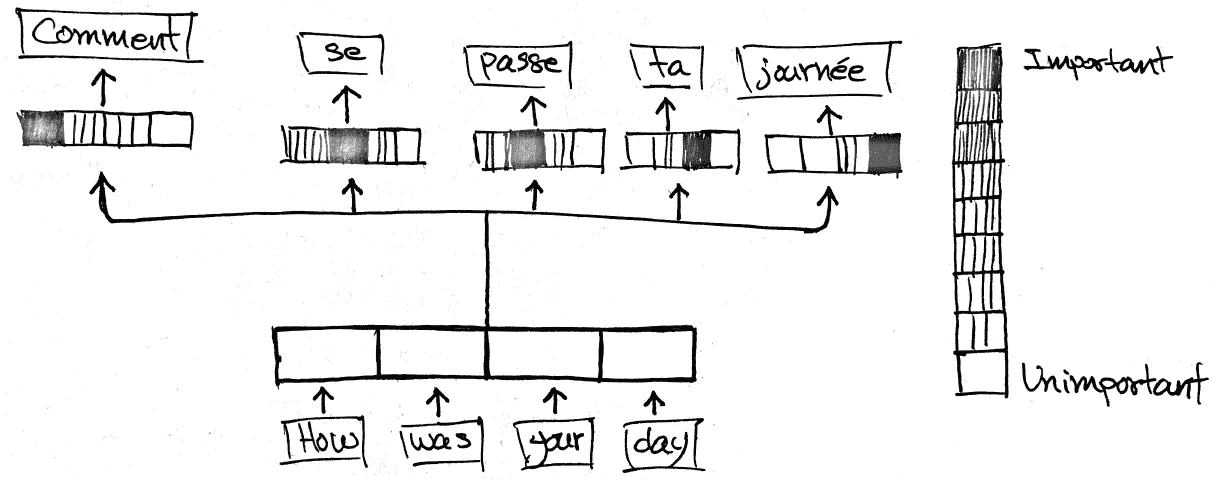 Comment
se
passe
ta
journée
Important
Unimportant
How
was
your
day